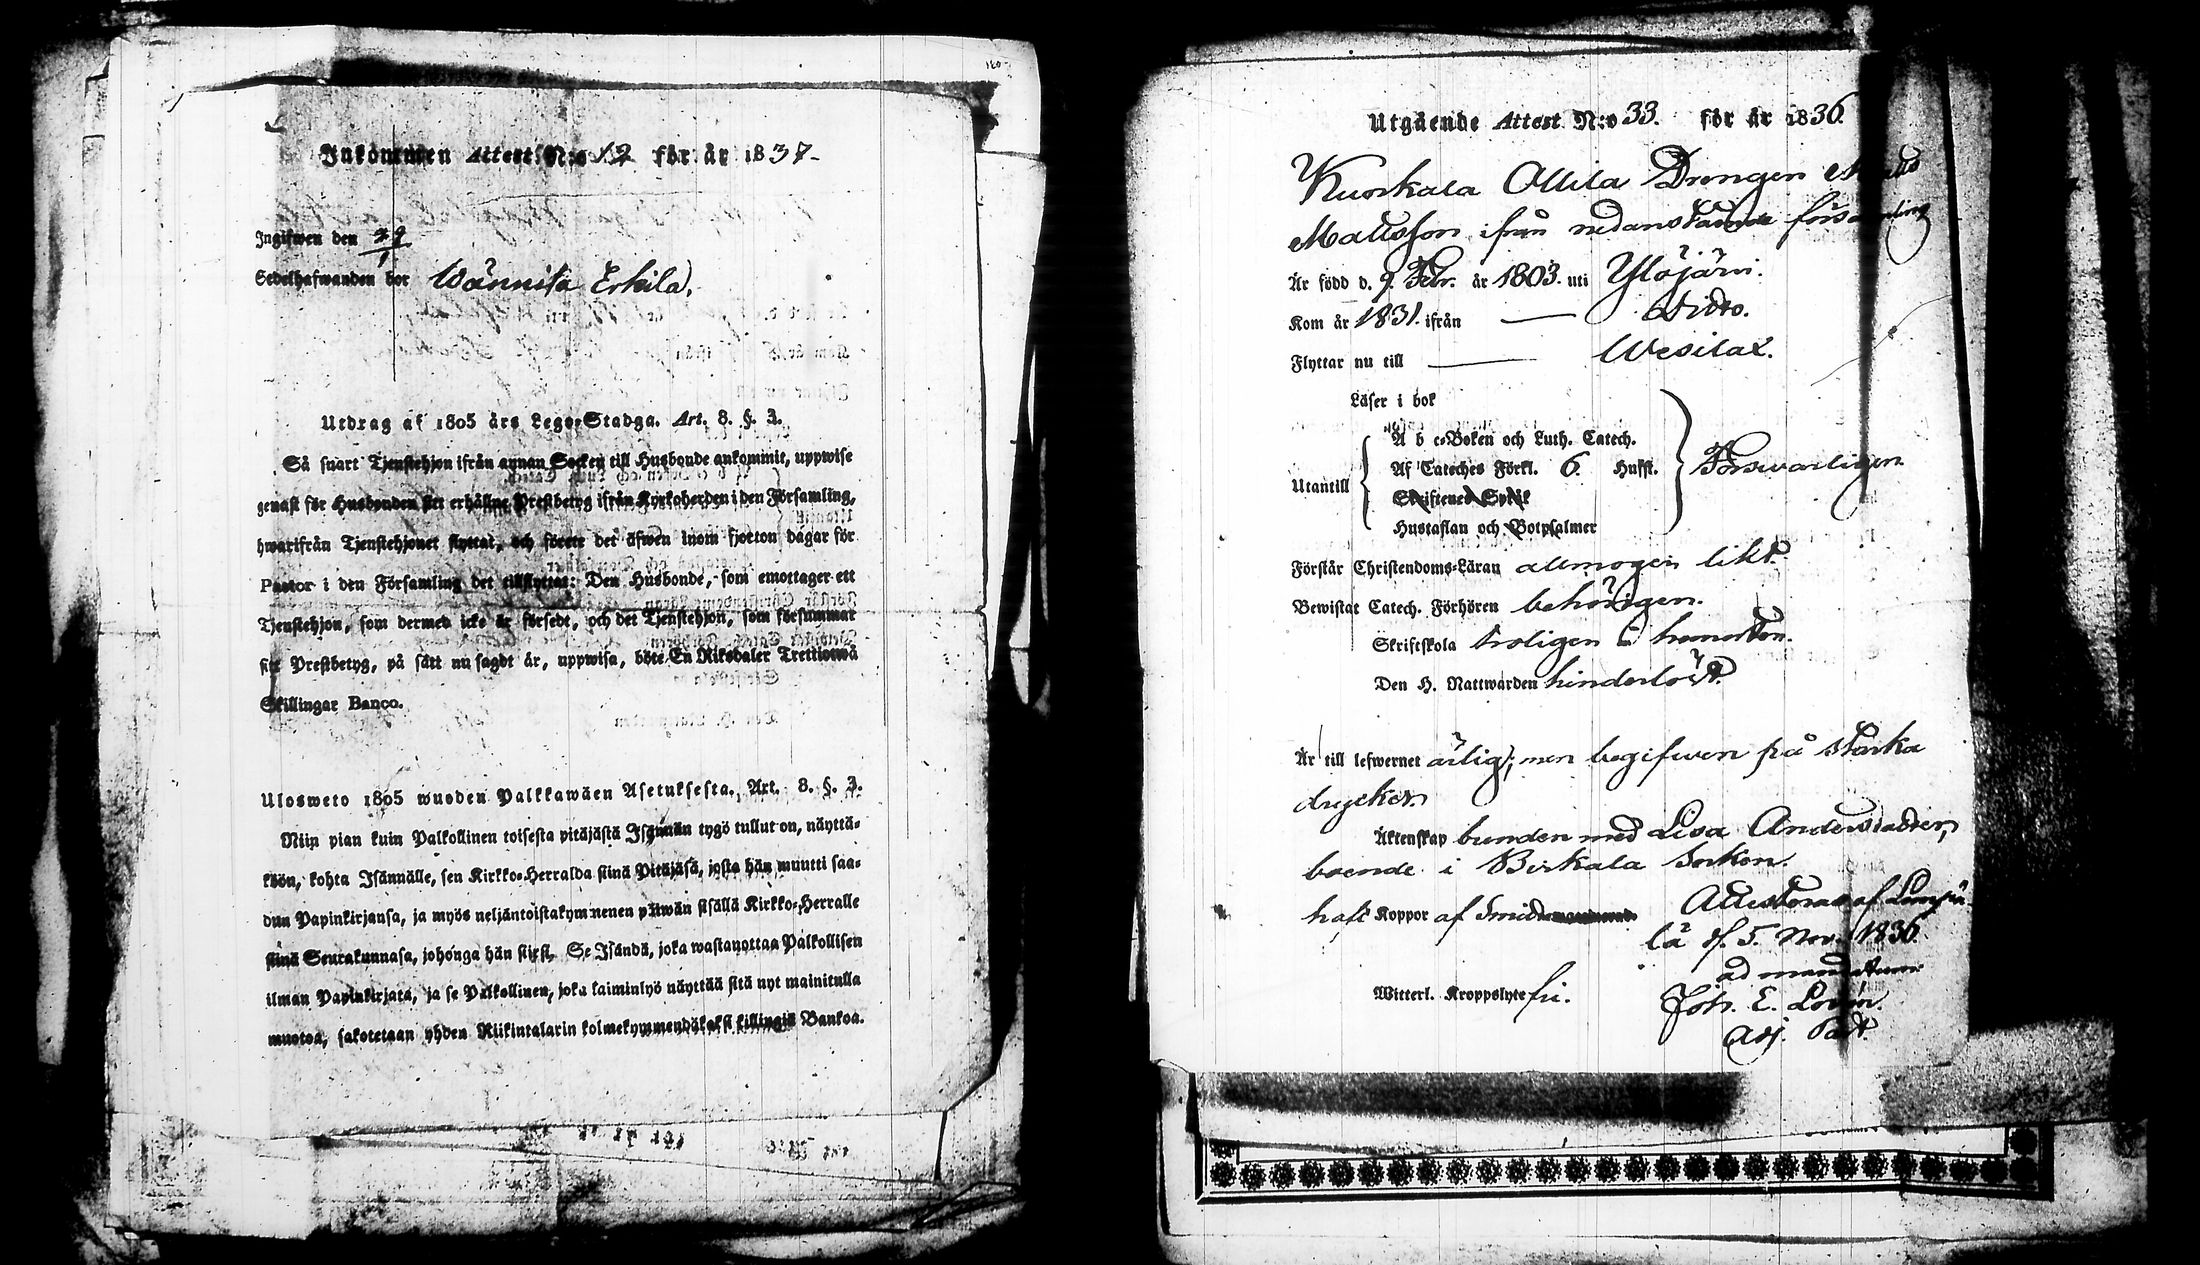 160
Inkommen Attest N:o 12 för år 1837.
Ingifwen den 29/1
Sedelhafwanden bor Wännilä Erkilä.
Utdrag af 1805 års Lego-Stadga. Art. 8. §. 3.
Så snart Tjenstehjon ifrån annan Socken till Husbonde ankommit, uppwise
genast för Husbonden sitt erhållne Prestbetyg ifrån Kyrkoherden i den Församling,
hwarifrån Tjenstehjonet flyttat, och förete det äfwen inom fjorton dagar för
Pastor i den Församling det tillflyttat: Den Husbonde, som emottager ett
Tjenstehjon, som dermed icke är försedt, och det Tjenstehjon, som försummar
sitt Prestbetyg, på sätt nu sagdt är, uppwisa, böte En Riksdaler Trettiotwå
Skillingar Banco.
Ulosweto 1805 wuoden Palkkawäen Asetuksesta. Art. 8. §. 3.
Niin pian kuin Palkollinen toisesta pitäjästä Isännän tygö tullut on, näyttä-
köön, kohta Isännälle, sen Kirkko-Herralda siinä Pitäjäsä, josta hän muutti saa-
dun Papinkirjansa, ja myös neljäntoistakymmenen päiwän sisällä Kirkko-Herralle
siinä Seurakunnasa, johonga hän siirsi. Se Isändä, joka wastanottaa Palkollisen
ilman Papinkirjata, ja se Palkollinen, joka laiminlyö näyttää sitä nyt mainitulla
muotoa, sakotetaan yhden Riikintalarin kolmekymmendäkaksi killingiä Bankoa.
Utgående Attest N:o 33. för år 1836.
Kurkala Ollila Drengen
Mattsson ifrån nedanstående församling
Är född d. 9. Febr. år 1803. uti Ylöjärvi.
Kom år 1831. ifrån — Dito.
Flyttar nu till — Wesilax.
Läser i bok
A b c-Boken och Luth. Catech.
Af Cateches Förkl. 6. Hufst. Förswarligen
Utantill
Skriftenes Språk
Hustaflan och Botpsalmer
Förstår Christendoms-Läran allmogen likt.
Bewistat Catech. Förhören behörigen.
Skriftskola troligen i hemorten.
Den H. Nattwarden hinderlöst.
Är till lefwernet ärlig; men begifwen på starka
drycker
Äktenskap bunden med Lisa Andersdotter,
boende i Birkala Socken.
haft Koppor af Smidd
Attesteras af
lä d. 5. Nov. 1836.
ad mandatum
Witterl. Kroppslyte fri.
Joh. E.
Adj. Past.